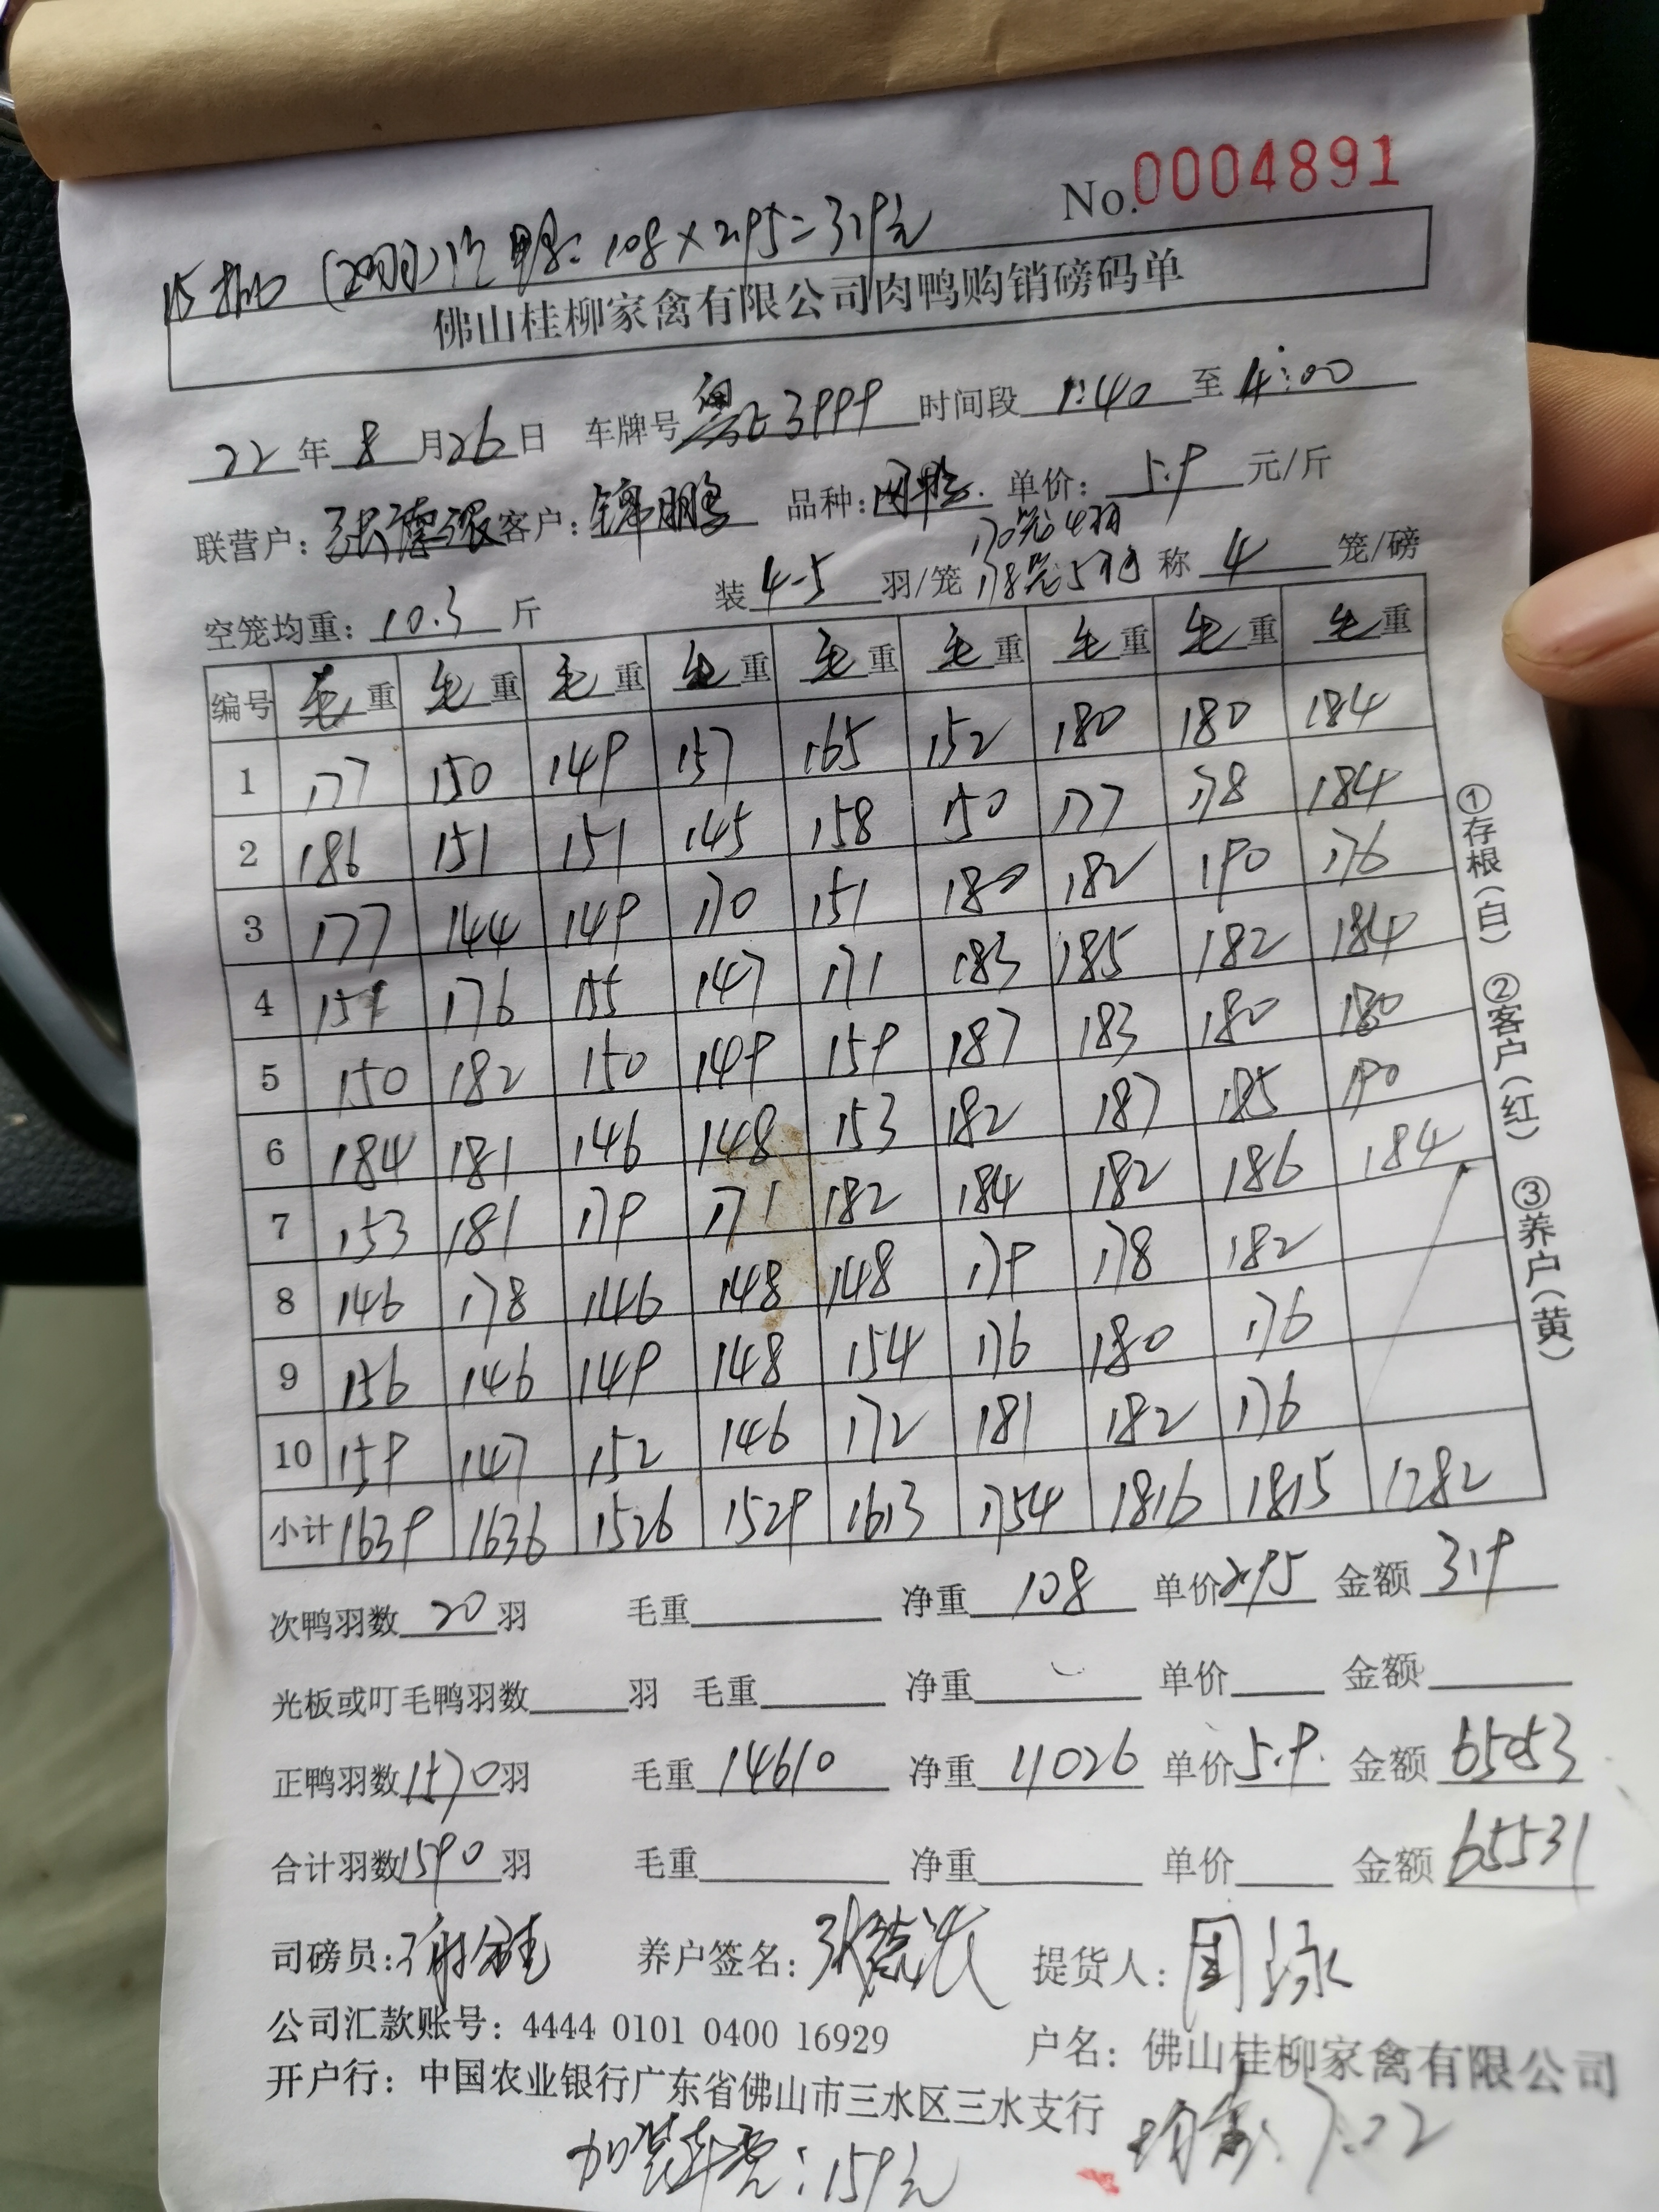 No.0004891
(20羽)次鸭:108×2.95=319元
佛山桂柳家禽有限公司肉鸭购销磅码单
22年8月26日 车牌号 时间段1:40至4:00
联营户: 客户:锦鹏 品种: 单价:5.9元/斤
170笼4羽
空笼均重:10.3斤 装4-5羽/笼 178笼5羽 称4笼/磅
编号 毛重 毛重 毛重 毛重 毛重 毛重 毛重 毛重 毛重
1 177 150 149 157 165 152 180 180 184
2 186 151 151 145 158 150 177 178 184
3 177 144 149 170 151 180 182 190 176
4 151 176 155 147 171 183 185 182 184
5 150 182 150 149 159 187 183 180 180
6 184 181 146 148 153 182 187 185 190
7 153 181 179 171 182 184 182 186 184
8 146 178 146 148 148 179 178 182
9 156 146 149 148 154 176 180 176
10 159 147 152 146 172 181 182 176
小计 1639 1636 1526 1529 1613 1754 1816 1815 1282
①存根(白) ②客户(红) ③养户(黄)
次鸭羽数20羽 毛重 净重108 单价2.95 金额319
光板或叮毛鸭羽数 羽 毛重 净重 单价 金额
正鸭羽数1570羽 毛重14610 净重11026 单价5.9. 金额65053
合计羽数1590羽 毛重 净重 单价 金额65531
司磅员: 养户签名: 提货人:
公司汇款账号:4444 0101 0400 16929 户名:佛山桂柳家禽有限公司
开户行:中国农业银行广东省佛山市三水区三水支行
加装车费:159元 均重:7.02